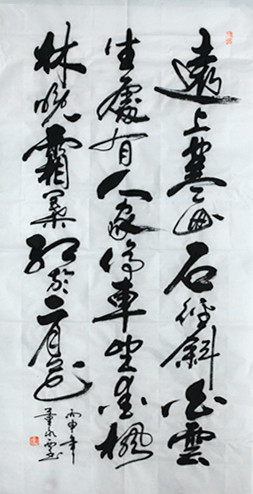 遠上寒山石徑斜白雲
生處有人家停車坐愛楓
林晚霜葉紅於二月花
丙申年